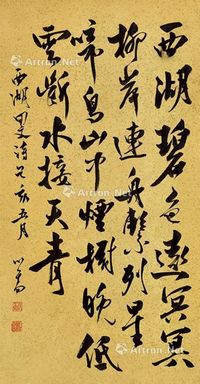 西湖碧色遠冥冥
柳岸連舟聚列星
啼鳥山中煙樹晚低
雲斷水接天青
西湖 詩 乙亥五月 心畬
Artron.Net
Artron.Net